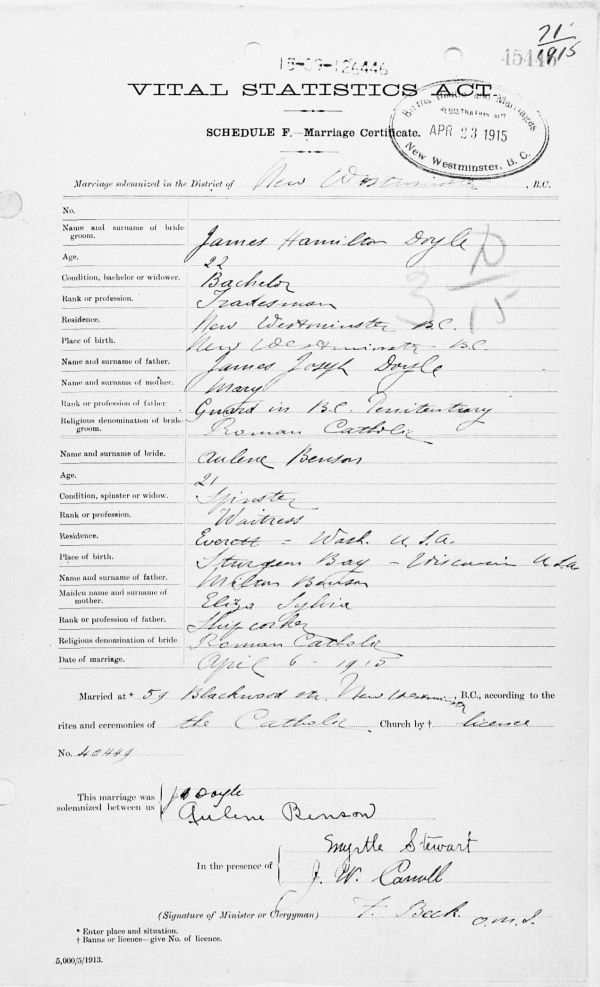 71
1915
15-09-126446
45446
VITAL STATISTICS ACT.
SCHEDULE F.—Marriage Certificate.
Births Deaths and Marriages
REGISTRATION ACT
APR 23 1915
New Westminster, B. C.
Marriage solemnized in the District of New Westminster, B.C.
No.
Name and surname of bridegroom. James Hamilton Doyle
Age. 22
Condition, bachelor or widower. Bachelor
Rank or profession. Tradesman
Residence. New Westminster B.C.
Place of birth. New Westminster B.C.
Name and surname of father. James Joseph Doyle
Name and surname of mother. Mary
Rank or profession of father. Guard in B.C. Penitentiary
Religious denomination of bridegroom. Roman Catholic
Name and surname of bride. Aulene Benson
Age. 21
Condition, spinster or widow. Spinster
Rank or profession. Waitress
Residence. Everett - Wash. U.S.A.
Place of birth. Sturgeon Bay - Wisconsin U.S.A.
Name and surname of father. Milton Benson
Maiden name and surname of mother. Eliza Sylvia
Rank or profession of father.
Religious denomination of bride. Roman Catholic
Date of marriage. April 6 - 1915
Married at * 59 Blackwood str. New Westminster, B.C., according to the
rites and ceremonies of the Catholic Church by † licence
No. 40449
This marriage was solemnized between us { J H Doyle
Aulene Benson
In the presence of { Myrtle Stewart
J. W. Carroll
(Signature of Minister or Clergyman) F. Beck O.M.I.
* Enter place and situation.
† Banns or licence—give No. of licence.
5,000/5/1913.